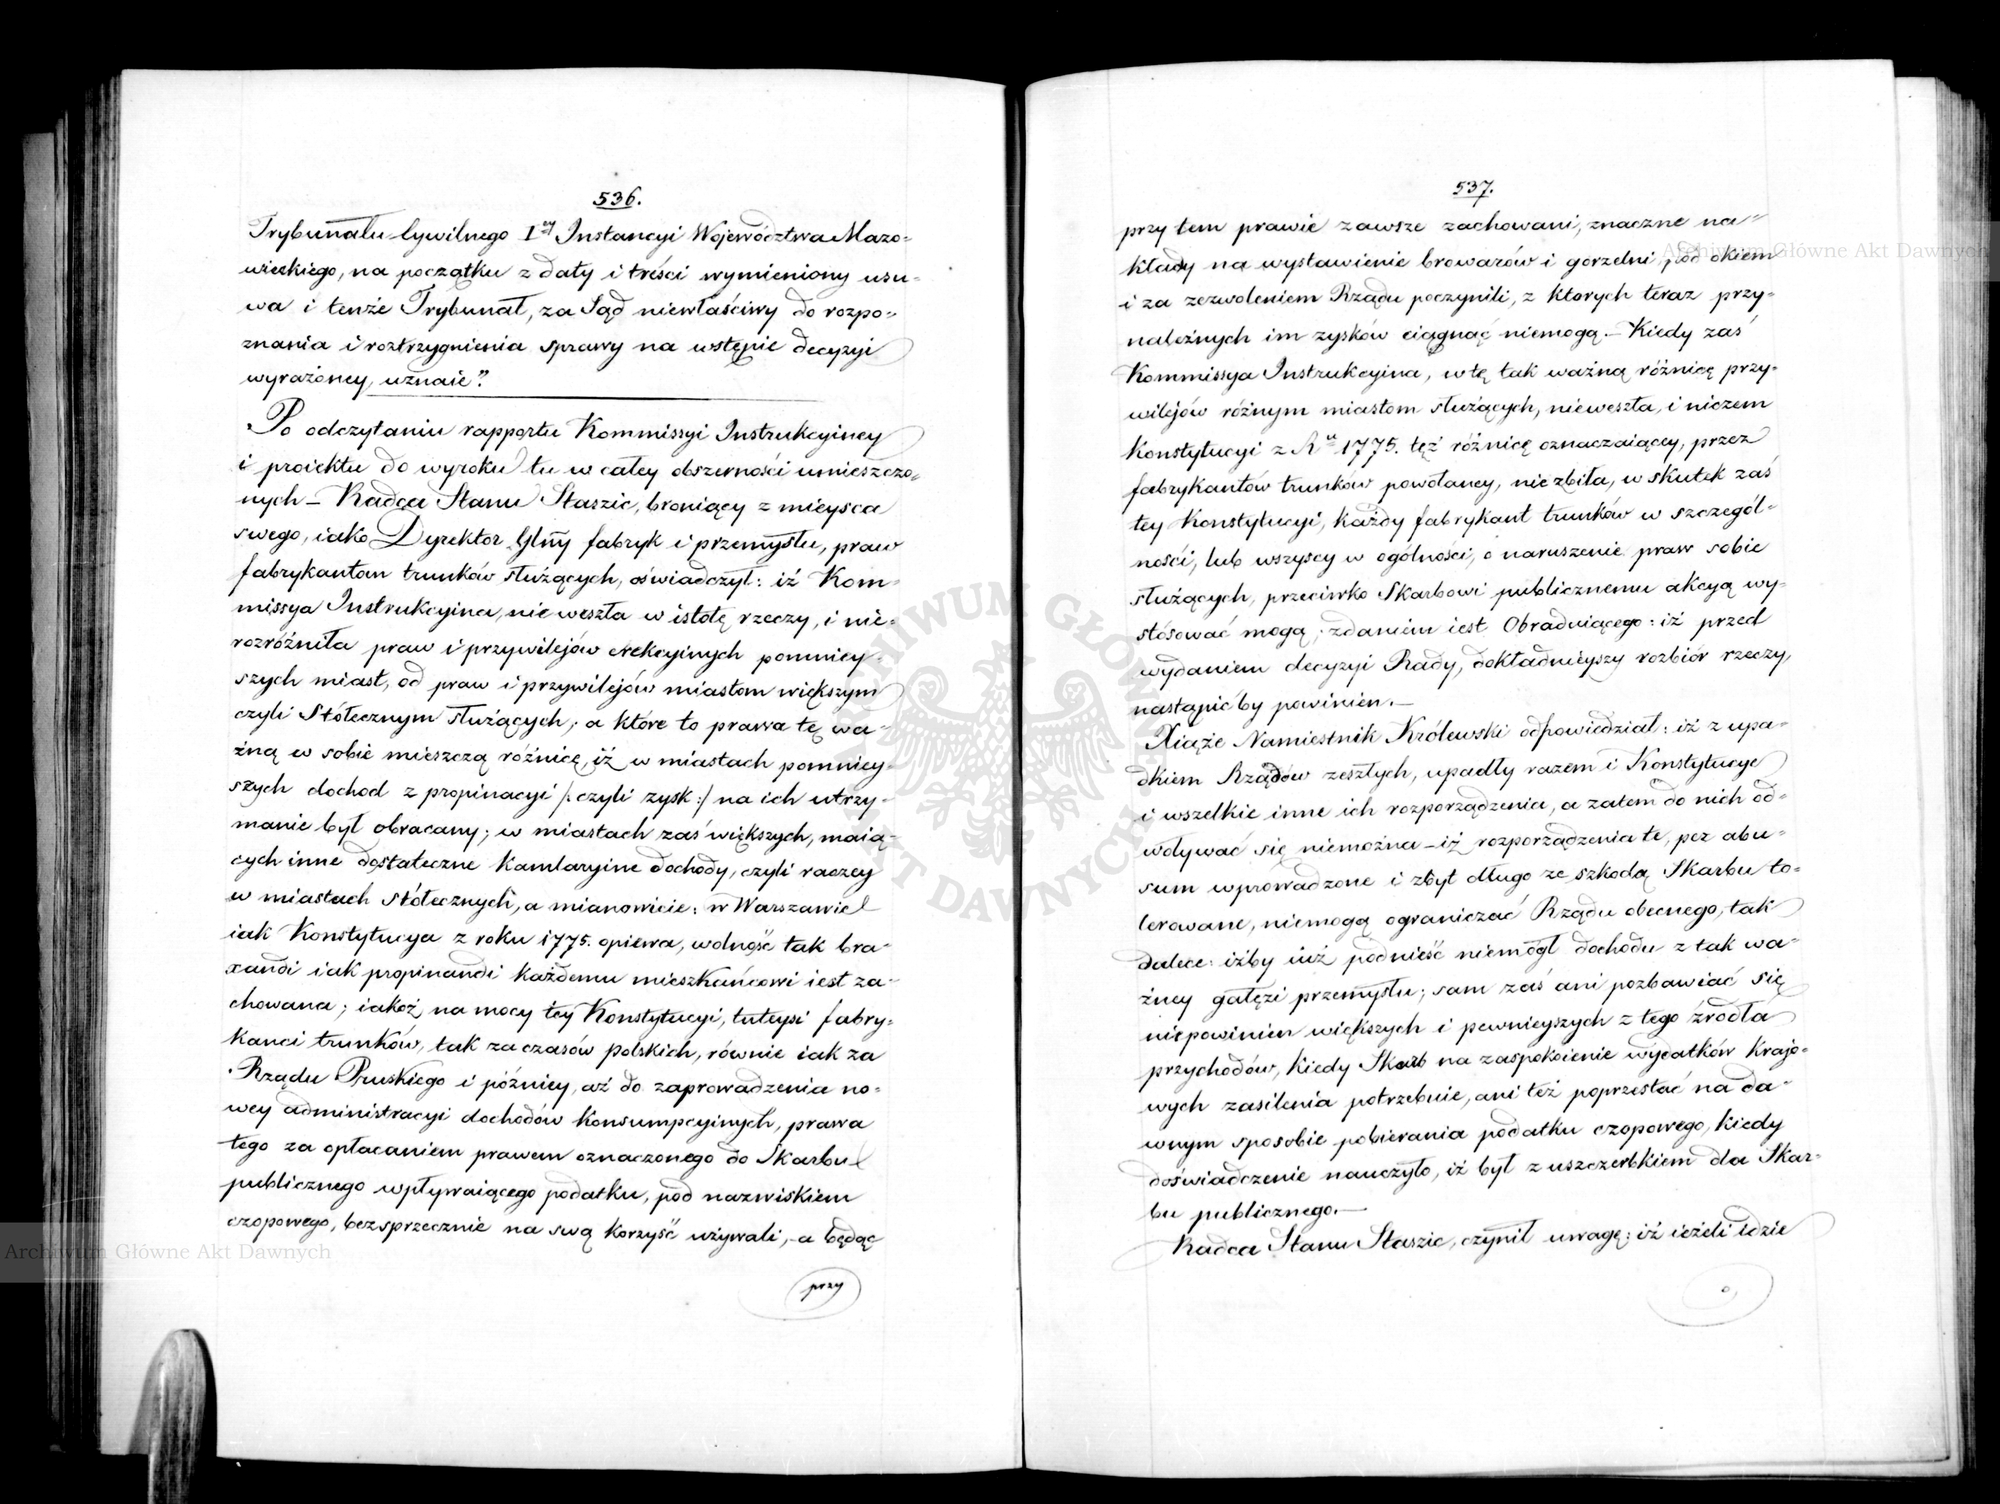 536.
Trybunału Cywilnego I<sup>ey</sup> Instancyi Województwa Mazo-
wieckiego, na początku z daty i treści wymieniony usu-
wa i tenże Trybunał, za Sąd niewłaściwy do rozpo-
znania i roztrzygnienia sprawy na wstępie decyzyi
wyrażoney, uznaie"
Po odczytaniu rapportu Kommissyi Instrukcyiney
i proiektu do wyroku tu w całey obszerności umieszczo-
nych – Radca Stanu Staszic, broniący z mieysca
swego, iako Dyrektor Glny fabryk i przemysłu, praw
fabrykantom trunków służących, oświadczył: iż Kom-
missya Instrukcyina, nie weszła w istotę rzeczy, i nie-
rozróżniła praw i przywilejów erekcyinych pomniey-
szych miast, od praw i przywilejów miastom większym
czyli Stołecznym służących; a które to prawa tę wa-
żną w sobie mieszczą różnicę, iż w miastach pomniey-
szych dochod z propinacyi /: czyli zysk :/ na ich utrzy-
manie był obracany; w miastach zaś większych, maią-
cych inne dostateczne kamlaryine dochody, czyli raczey
w miastach stółecznych, a mianowicie: w Warszawie
iak Konstytucya z roku 1775. opiewa, wolność tak bra-
xandi iak propinandi każdemu mieszkańcowi iest za-
chowana; iakoż, na mocy tey Konstytucyi, tuteysi fabry-
kanci trunków, tak za czasów polskich, równie iak za
Rządu Pruskiego i późniey, aż do zaprowadzenia no-
wey administracyi dochodów konsumpcyinych, prawa
tego za opłacaniem prawem oznaczonego do Skarbu
publicznego wpływaiącego podatku, pod nazwiskiem
czopowego, bezsprzecznie na swą korzyść używali, a będąc
przy
537.
przy tem prawie zawsze zachowani, znaczne na-
kłady na wystawienie browarów i gorzelni, pod okiem
i za zezwoleniem Rządu poczynili, z ktorych teraz przy-
należnych im zysków ciągnąć niemogą. – Kiedy zaś
Kommissya Instrukcyina, w tę tak ważną różnicę przy-
wilejów różnym miastom służących, nieweszła, i niczem
Konstytucyi z R<sup>u</sup> 1775. tęż różnicę oznaczaiącey, przez
fabrykantów trunków powołaney, nie zbiła, w skutek zaś
tey Konstytucyi, każdy fabrykant trunków w szczegól-
ności, lub wszyscy w ogólności, o naruszenie praw sobie
służących, przeciwko Skarbowi publicznemu akcyą wy-
stósować mogą; zdaniem iest Obraduiącego: iż przed
wydaniem decyzyi Rady, dokładnieyszy rozbiór rzeczy,
nastąpić by powinien. –
Xiąże Namiestnik Królewski odpowiedział: iż z upa-
dkiem Rządów zeszłych, upadły razem i Konstytucye
i wszelkie inne ich rozporządzenia, a zatem do nich od-
woływać się niemożna – iż rozporządzenia te, per abu-
sum wprowadzone i zbyt długo ze szkodą Skarbu to-
lerowane, niemogą ograniczać Rządu obecnego, tak
dalece: iżby iuż podnieść niemógł dochodu z tak wa-
żney gałęzi przemysłu; sam zaś ani pozbawiać się
niepowinien większych i pewnieyszych z tego źrodła
przychodów, kiedy Skarb na zaspokoienie wydatków krajo-
wych zasilenia potrzebuie, ani też poprzestać na da-
wnym sposobie pobierania podatku czopowego, kiedy
doświadczenie nauczyło, iż był z uszczerbkiem dla Skar-
bu publicznego. –
Radca Stanu Staszic, czynił uwagę: iż ieżeli idzie
o,
Archiwum Główne Akt Dawnych
Archiwum Główne Akt Dawnych
ARCHIWUM GŁÓWNE AKT DAWNYCH